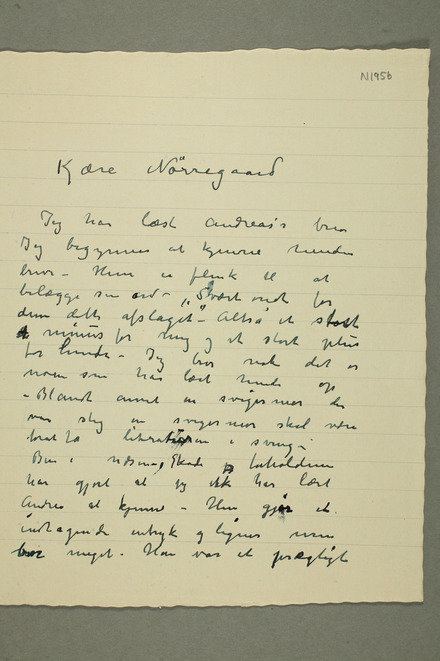 N1956
Kjære Nörregaard
Jeg har læst Andreas's brev
Jeg begynner at kjenne hendes
brev - Hun er flink til at
belægge sine ord - „Svært ondt for
dem dette afslaget" - Altså et stort
minus for mig og et stort plus
for hende - Jeg tror nok det er
noen som har læst hende op
- Blandt annet en svigermor der
var slig en svigermor skal være
literaturen i sving -
forholdene
har gjort at jeg ikke har lært
Andrea at kjenne - Hun gjør et
indtagende indtryk og ligner min
bror meget - Han var et prægtigt